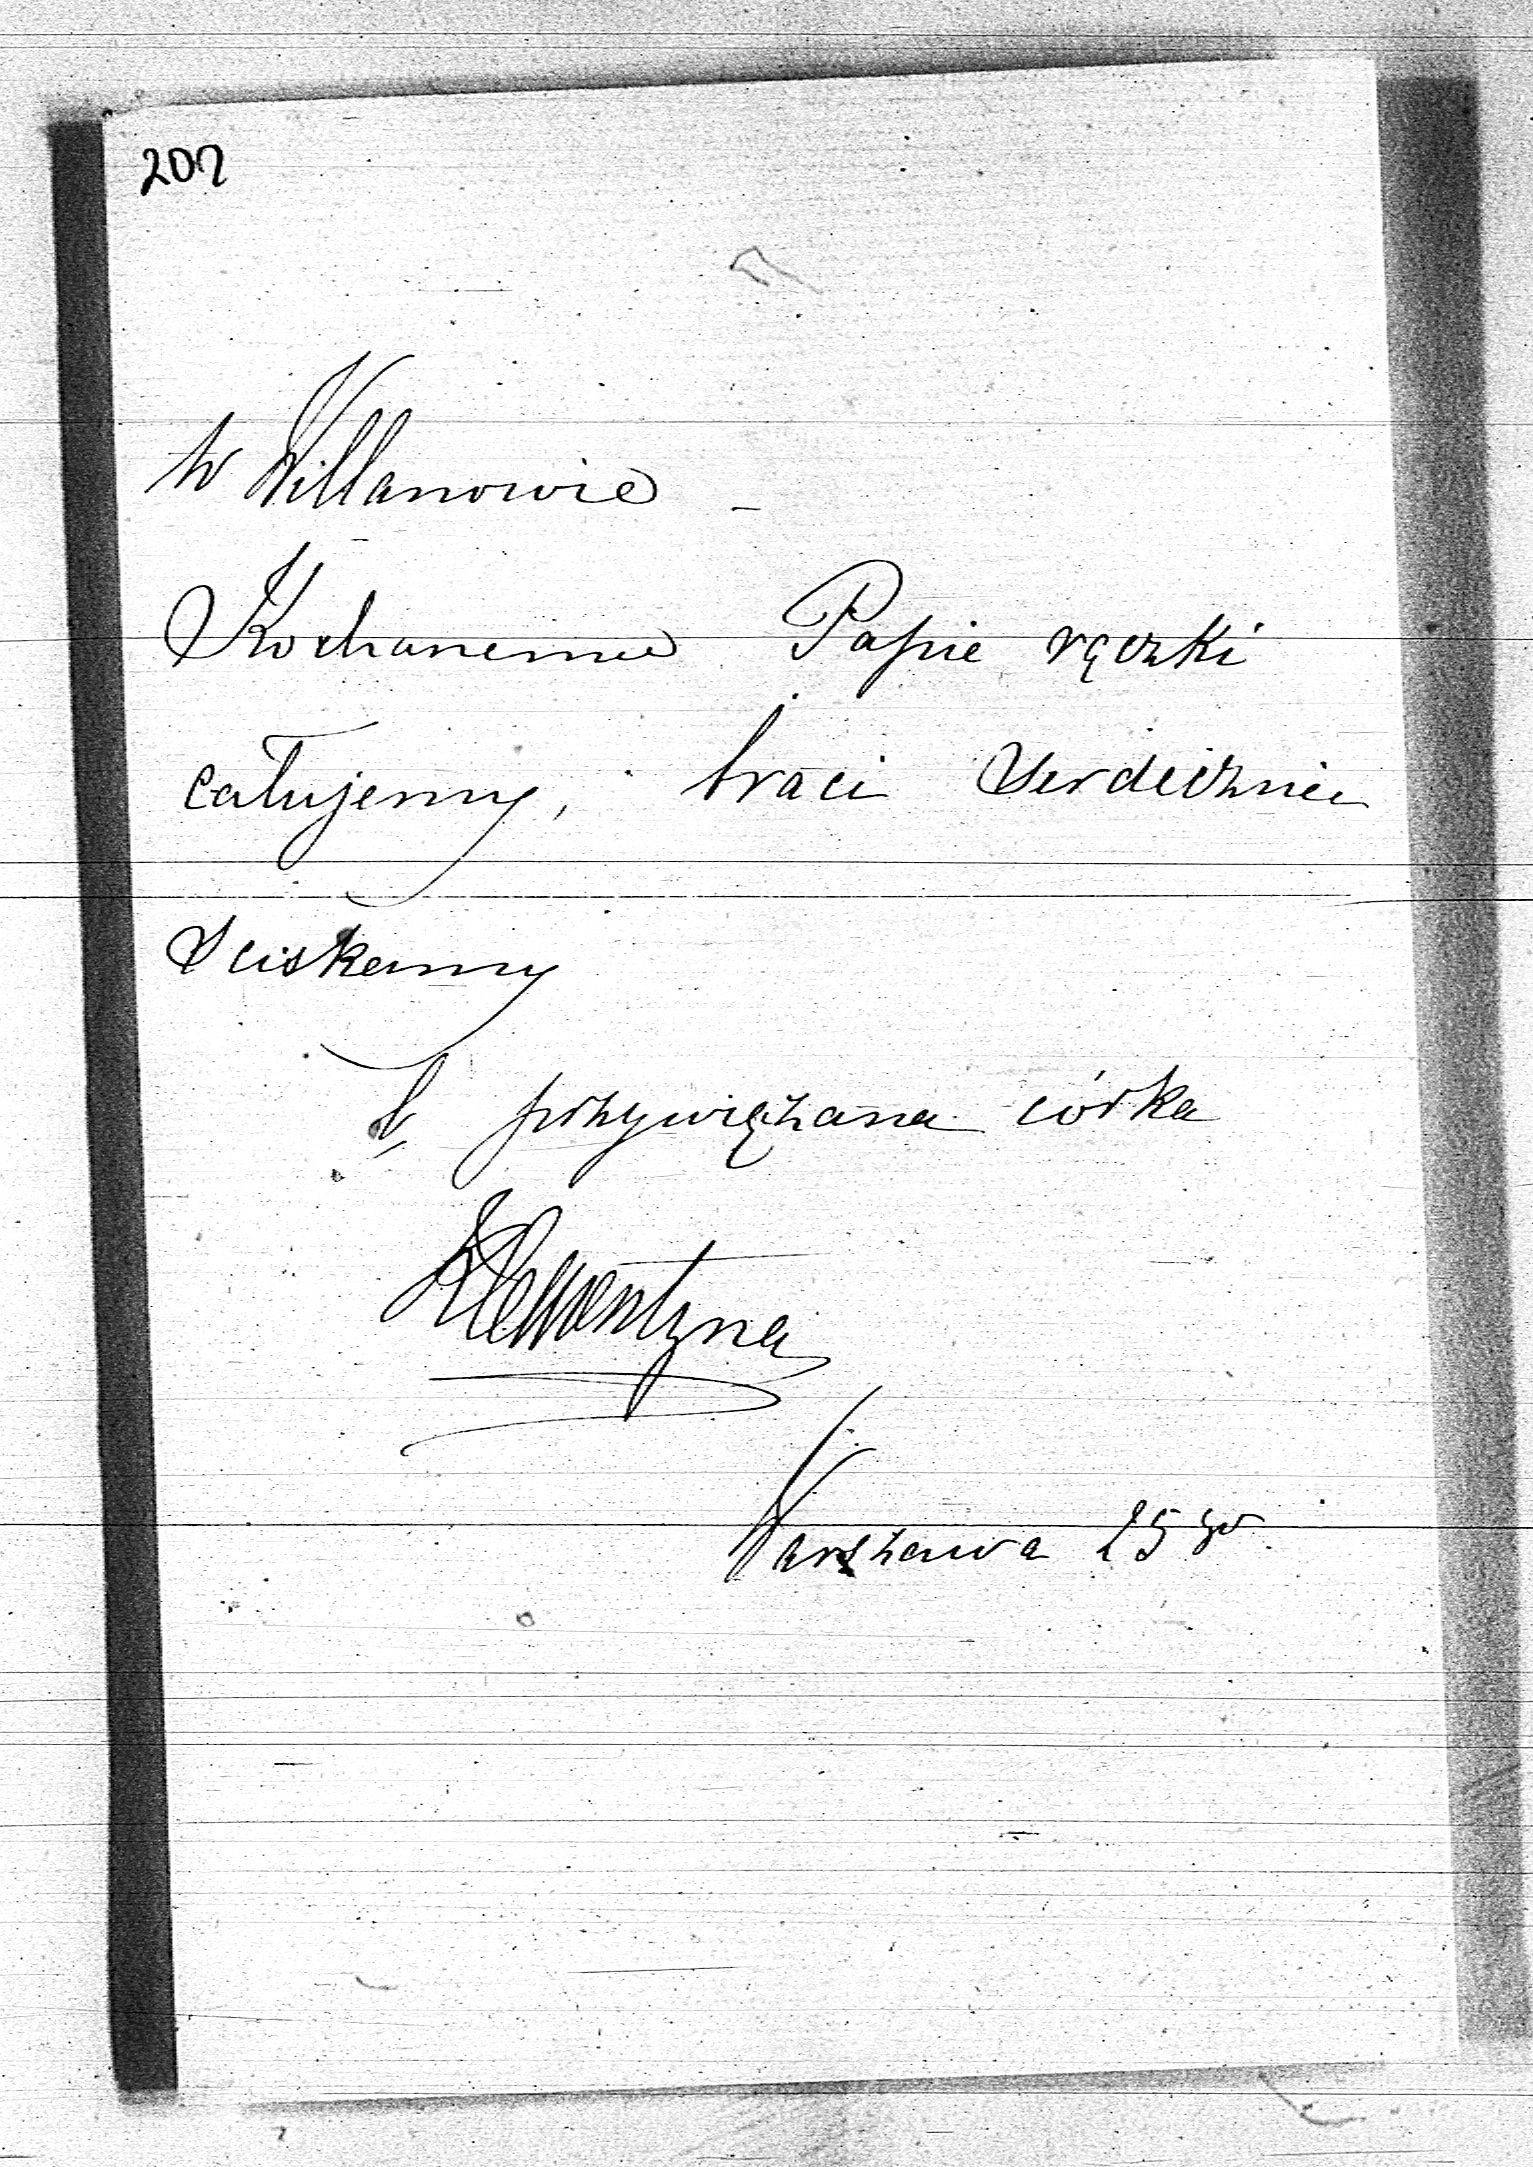 202
w Willanowie
Kochanemu Papie rączki
całujemy, braci serdecznie
sciskamy
przywiązana córka
Klementyna
Warszawa 25 go